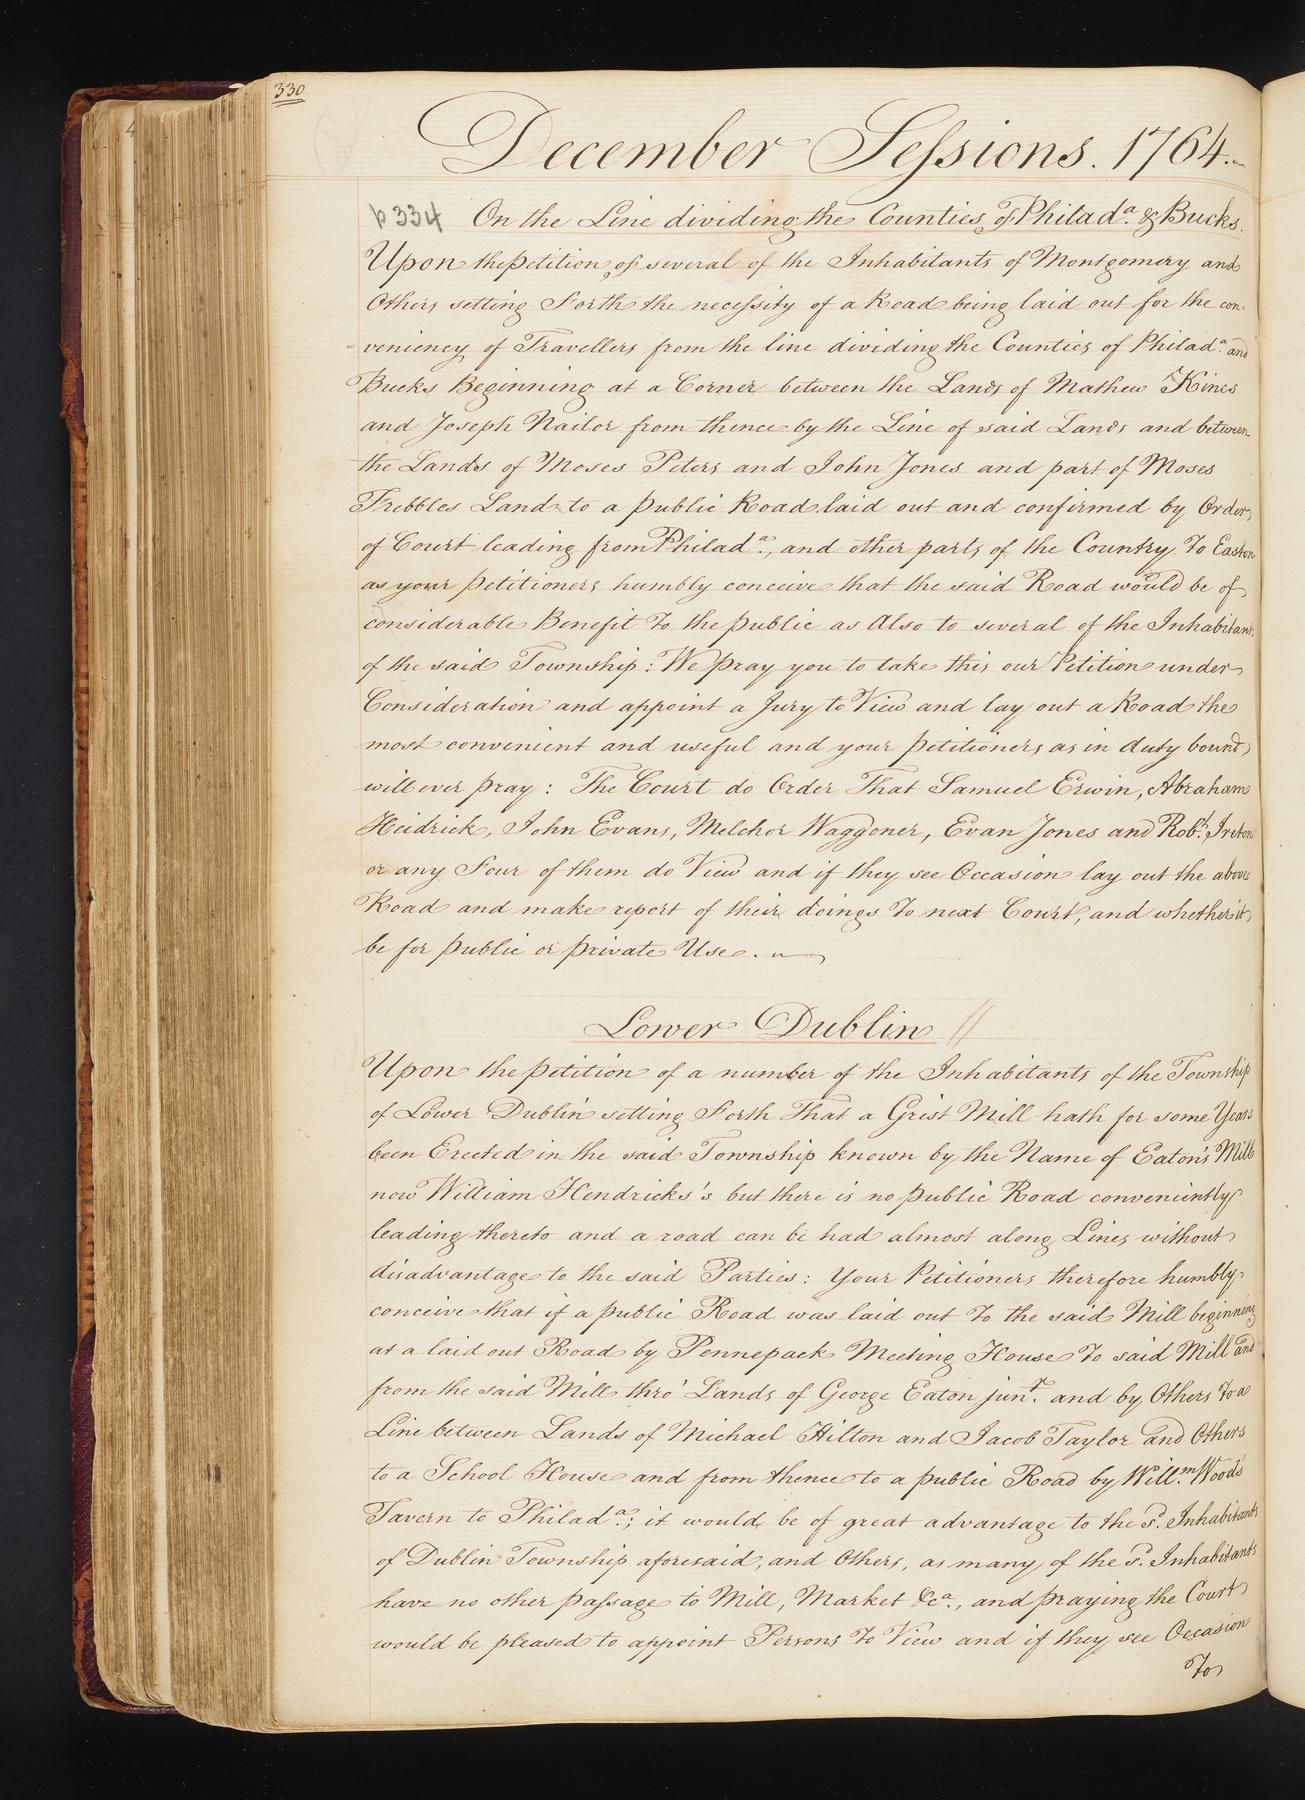 330
December Sessions. 1764.
p 334 On the Line dividing the Counties of Philad.ª & Bucks.
Upon the petition of several of the Inhabitants of Montgomery and
Others setting Forth the necessity of a Road being laid out for the con-
=veniency of Travellers from the line dividing the Counties of Philad.ª and
Bucks Beginning at a Corner between the Lands of Mathew Kines
and Joseph Nailor from thence by the Line of said Lands and between
the Lands of Moses Peters and John Jones and part of Moses
Frebbles Land to a public Road laid out and confirmed by Order
of Court leading from Philad.ª, and other parts of the Country To Easton
as your petitioners humbly conceive that the said Road would be of
considerable Benefit To the public as Also to several of the Inhabitants
of the said Township: We pray you to take this our Petition under
Consideration and appoint a Jury to View and lay out a Road the
most convenient and useful and your petitioners as in duty bound
will ever pray: The Court do Order That Samuel Erwin, Abraham
Heidrick, John Evans, Melchor Waggoner, Evan Jones and Rob.t Ireton
or any Four of them do View and if they see Occasion lay out the above
Road and make report of their doings To next Court, and whether it
be for public or private Use.
Lower Dublin //
Upon the petition of a number of the Inhabitants of the Township
of Lower Dublin setting Forth That a Grist Mill hath for some Years
been Erected in the said Township known by the Name of Eaton's Mill
now William Hendricks's but there is no public Road conveniently
leading thereto and a road can be had almost along Lines without
disadvantage to the said Parties: Your Petitioners therefore humbly
conceive that if a public Road was laid out To the said Mill beginning
at a laid out Road by Pennepack Meeting House To said Mill and
from the said Mill thro' Lands of George Eaton jun.r and by Others To a
Line between Lands of Michael Hilton and Jacob Taylor and Others
to a School House and from thence to a public Road by Will.m Woods
Tavern to Philad.ª; it would be of great advantage to the s.d Inhabitants
of Dublin Township aforesaid, and Others, as many of the s.d Inhabitants
have no other passage to Mill, Market &c.ª, and praying the Court
would be pleased to appoint Persons To View and if they see Occasion
To